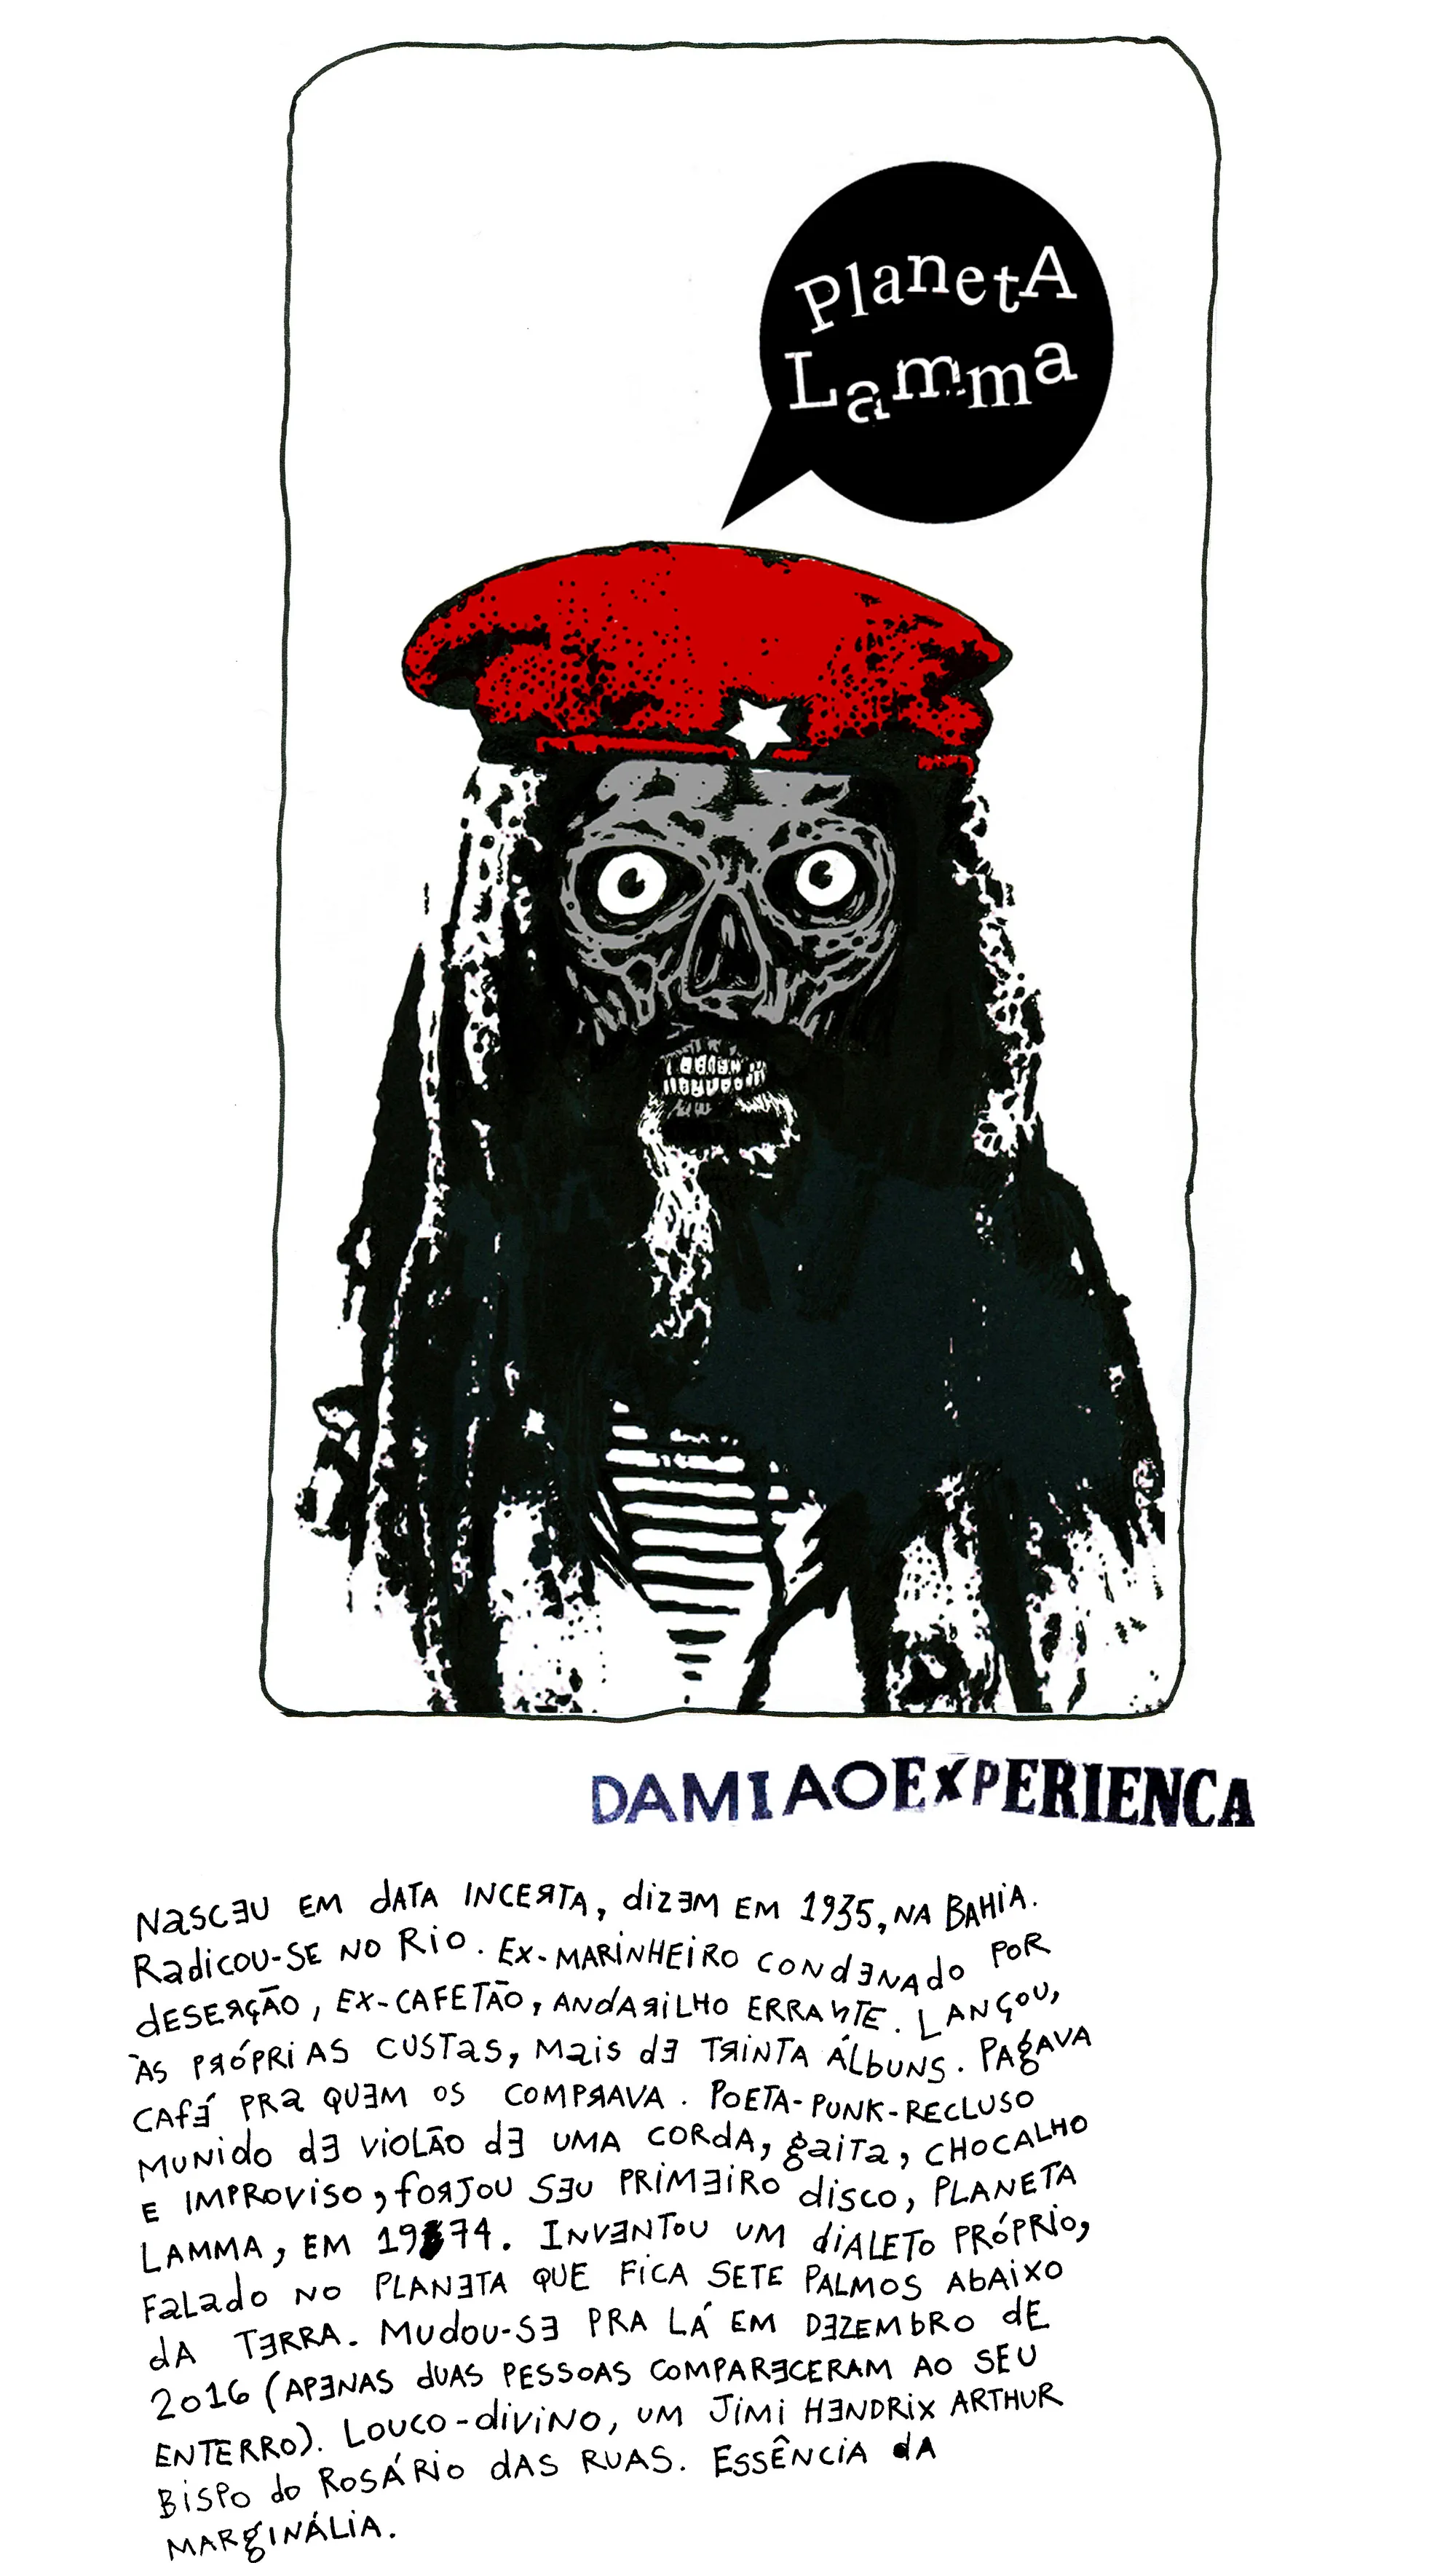 PlanetA
Lamma
DAMIAOEXPERIENCA
Nasceu em data incerta, dizem em 1935, na Bahia.
Radicou-se no Rio. Ex-marinheiro condenado por
deserção, ex-cafetão, andarilho errante. Lançou,
às próprias custas, mais de trinta álbuns. Pagava
café pra quem os comprava. Poeta-punk-recluso
munido de violão de uma corda, gaita, chocalho
e improviso, forjou seu primeiro disco, Planeta
Lamma, em 1974. Inventou um dialeto próprio,
falado no planeta que fica sete palmos abaixo
da terra. Mudou-se pra lá em dezembro de
2016 (apenas duas pessoas compareceram ao seu
enterro). Louco-divino, um Jimi Hendrix Arthur
Bispo do Rosário das ruas. Essência da
marginália.